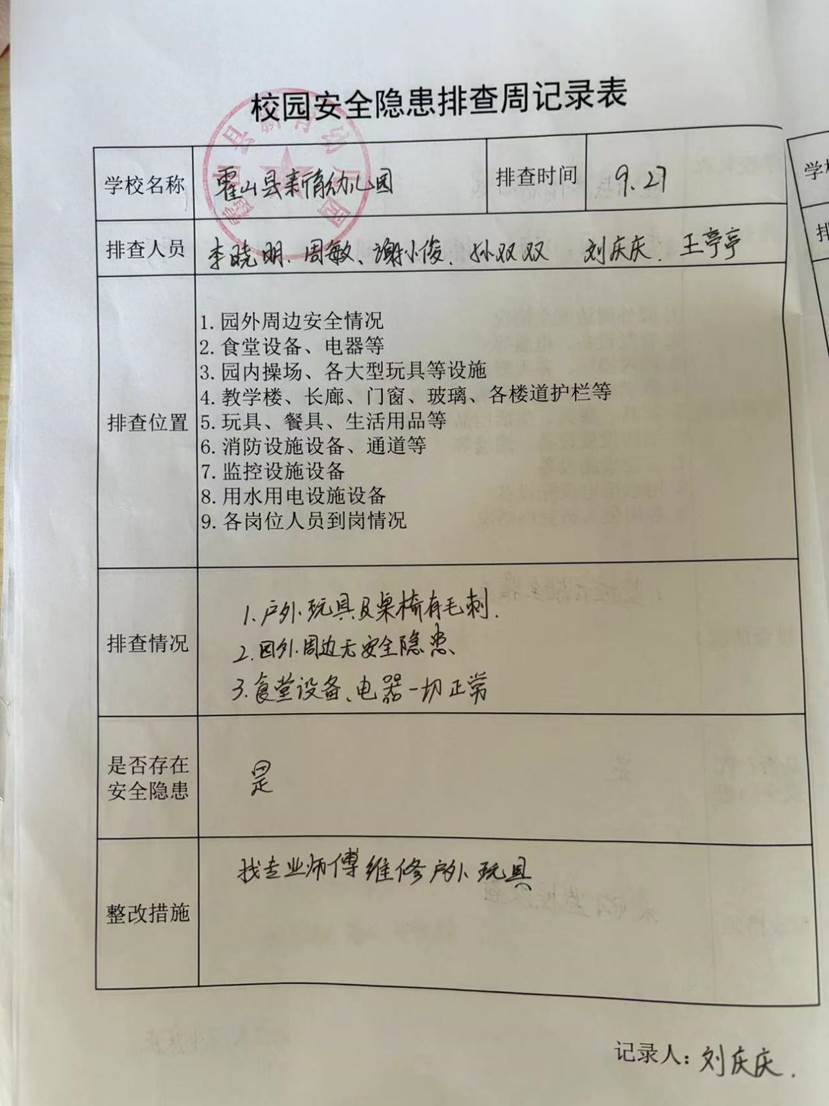 校园安全隐患排查周记录表
学校名称 霍山县新育幼儿园 排查时间 9.27
排查人员 李晓明、周敏、谢小俊、孙双双 刘庆庆、王亭亭
排查位置
1. 园外周边安全情况
2. 食堂设备、电器等
3. 园内操场、各大型玩具等设施
4. 教学楼、长廊、门窗、玻璃、各楼道护栏等
5. 玩具、餐具、生活用品等
6. 消防设施设备、通道等
7. 监控设施设备
8. 用水用电设施设备
9. 各岗位人员到岗情况
排查情况
1、户外玩具及桌椅有毛刺.
2、园外周边无安全隐患、
3、食堂设备、电器一切正常
是否存在
安全隐患
是
整改措施
找专业师傅维修户外玩具
记录人：刘庆庆.